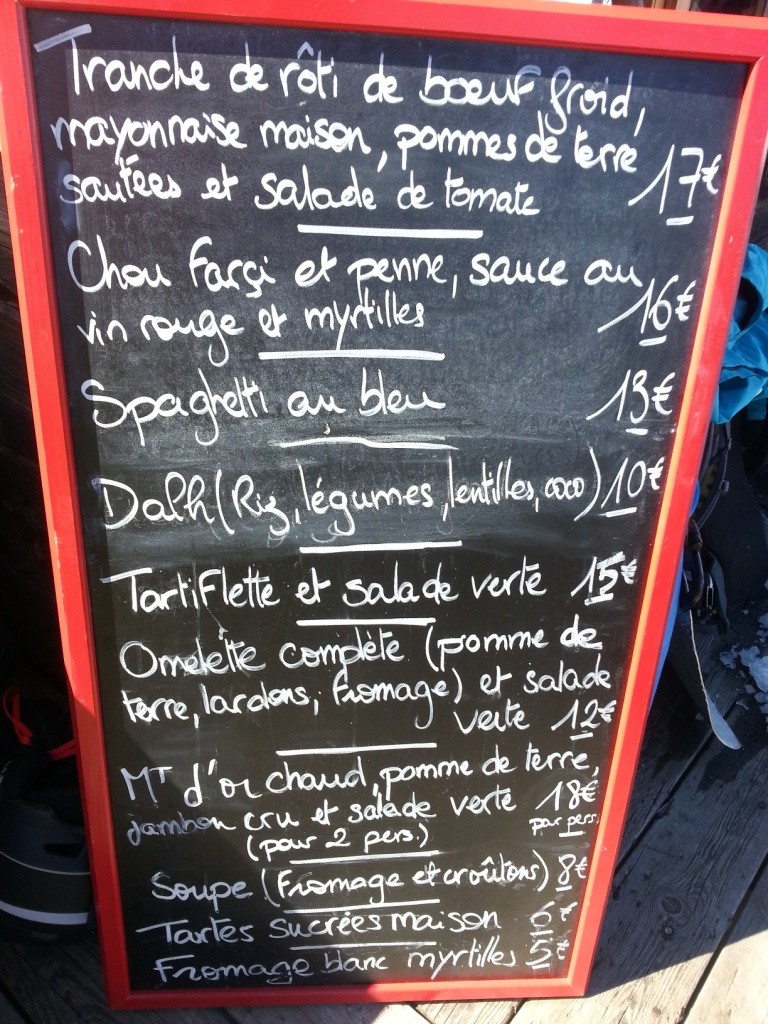 Tranche de rôti de boeuf froid,
mayonnaise maison, pommes de terre
sautées et salade de tomate 17€
Chou farçi et penne, sauce au
vin rouge et myrtilles 16€
Spaghetti au bleu 13€
Dalh (Riz, légumes, lentilles, coco) 10€
Tartiflette et salade verte 15€
Omelette complète (pomme de
terre, lardons, fromage) et salade
verte 12€
MT d'or chaud, pomme de terre,
jambon cru et salade verte 18€
(pour 2 pers.) par pers.
Soupe (Fromage et croûtons) 8€
Tartes sucrées maison 6€
Fromage blanc myrtilles 5€